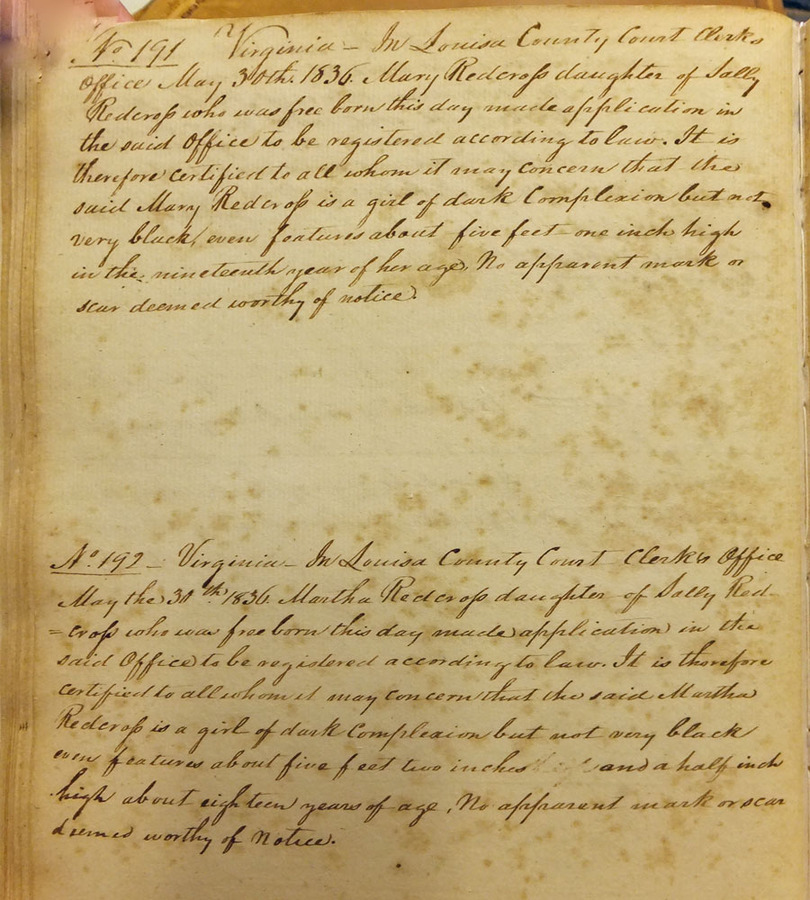 No 191 Virginia - In Louisa County Court Clerks
Office May 30th. 1836. Mary Redcross daughter of Sally
Redcross who was free born this day made application in
the said Office to be registered according to law. It is
therefore certified to all whom it may concern that the
said Mary Redcross is a girl of dark Complexion but not
very black, even features about five feet one inch high
in the nineteenth year of her age, No apparent mark or
scar deemed worthy of notice.
No. 192 - Virginia - In Louisa County Court Clerk's Office
May the 30th. 1836. Martha Redcross daughter of Sally Red-
=cross who was free born this day made application in the
said Office to be registered according to law. It is therefore
certified to all whom it may concern that the said Martha
Redcross is a girl of dark Complexion but not very black
even features about five feet two inches and a half inch
high about eighteen years of age, No apparent mark or scar
deemed worthy of Notice.